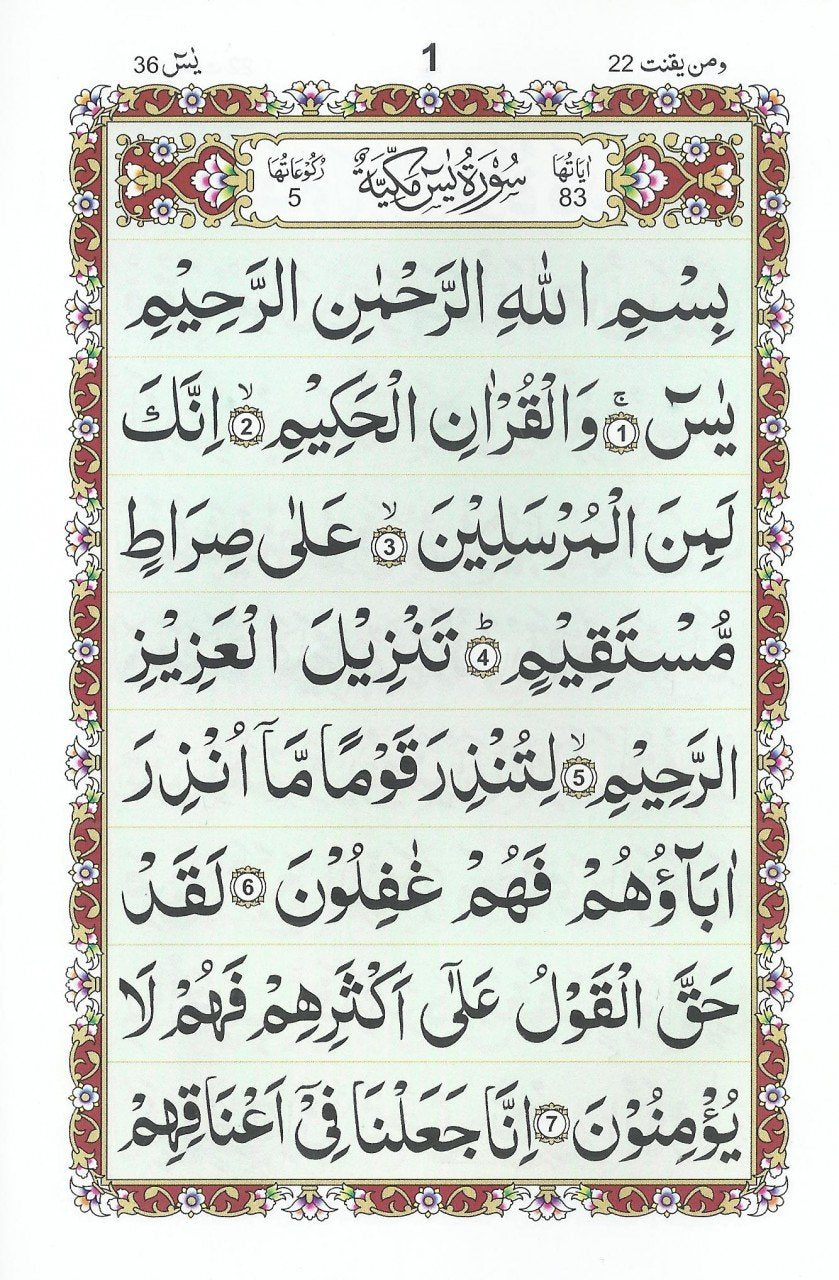 ومن یقنت 22 1 یٰسٓ 36
اٰیَاتُهَا 83 سُوْرَةُ یٰسٓ مَكِّیَّةٌ رُكُوْعَاتُهَا 5
بِسْمِ اللهِ الرَّحْمٰنِ الرَّحِیْمِ
یٰسٓ ۚ 1 وَالْقُرْاٰنِ الْحَكِیْمِ ۙ 2 اِنَّكَ
لَمِنَ الْمُرْسَلِیْنَ ۙ 3 عَلٰی صِرَاطٍ
مُّسْتَقِیْمٍ ؕ 4 تَنْزِیْلَ الْعَزِیْزِ
الرَّحِیْمِ ۙ 5 لِتُنْذِرَ قَوْمًا مَّاۤ اُنْذِرَ
اٰبَآؤُهُمْ فَهُمْ غٰفِلُوْنَ 6 لَقَدْ
حَقَّ الْقَوْلُ عَلٰۤی اَكْثَرِهِمْ فَهُمْ لَا
یُؤْمِنُوْنَ 7 اِنَّا جَعَلْنَا فِیْۤ اَعْنَاقِهِمْ